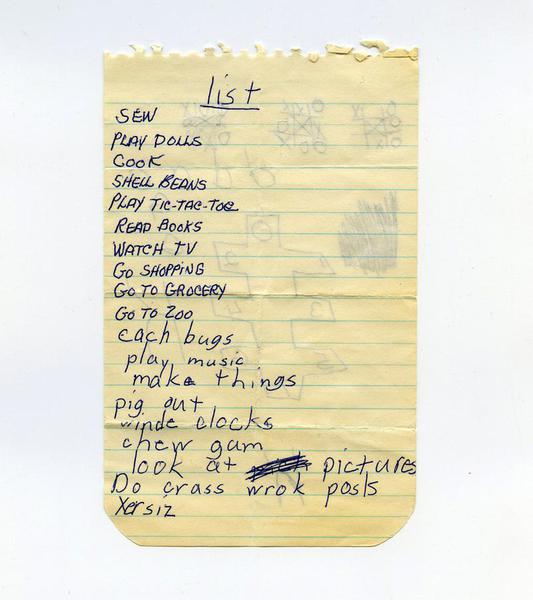 list
SEW
PLAY DOLLS
COOK
SHELL BEANS
PLAY TIC-TAC-TOE
READ BOOKS
WATCH TV
GO SHOPPING
GO TO GROCERY
GO TO ZOO
cach bugs
play music
make things
pig out
winde clocks
chew gam
look at pictures
Do crass wrok posls
Xersiz